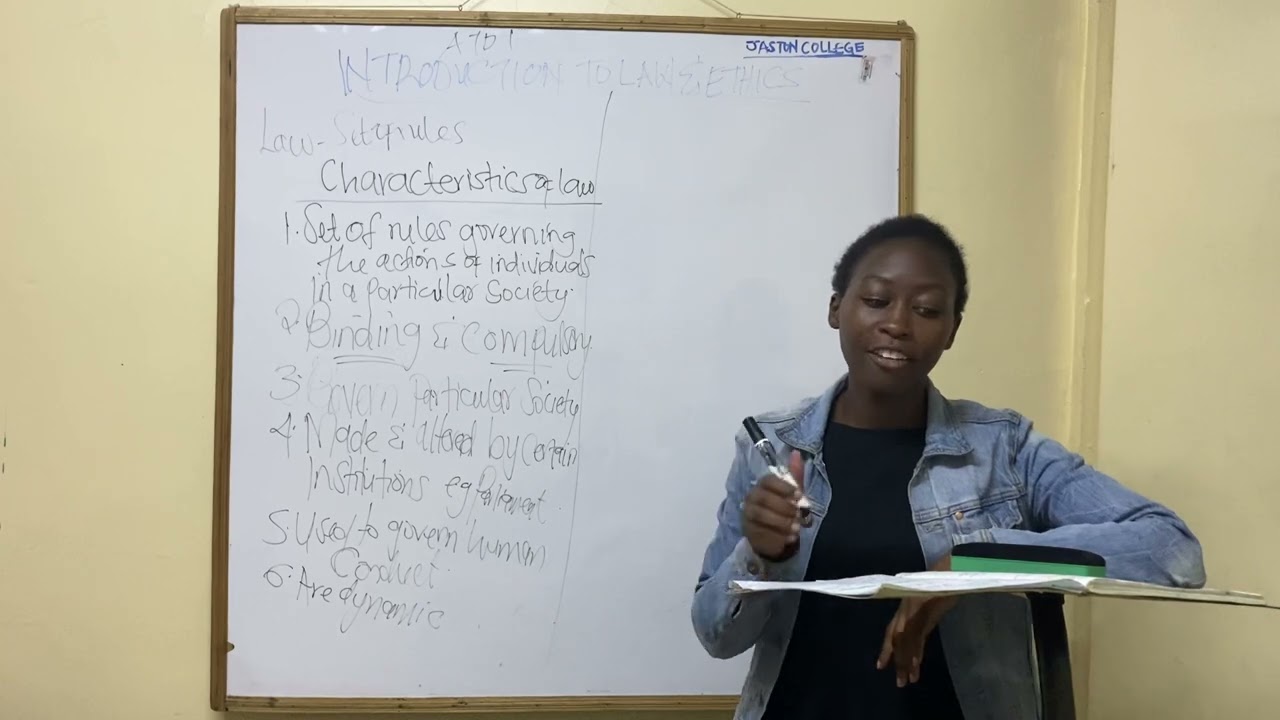 ATD 1
JASTON COLLEGE
INTRODUCTION TO LAW & ETHICS
Law - Set of rules
Characteristics of law
1. Set of rules governing
the actions of individuals
in a particular society.
2. Binding & Compulsory
3. Govern particular Society
4. Made & altered by certain
Institutions eg Parliament.
5. Used to govern human
Conduct.
6. Are dynamic